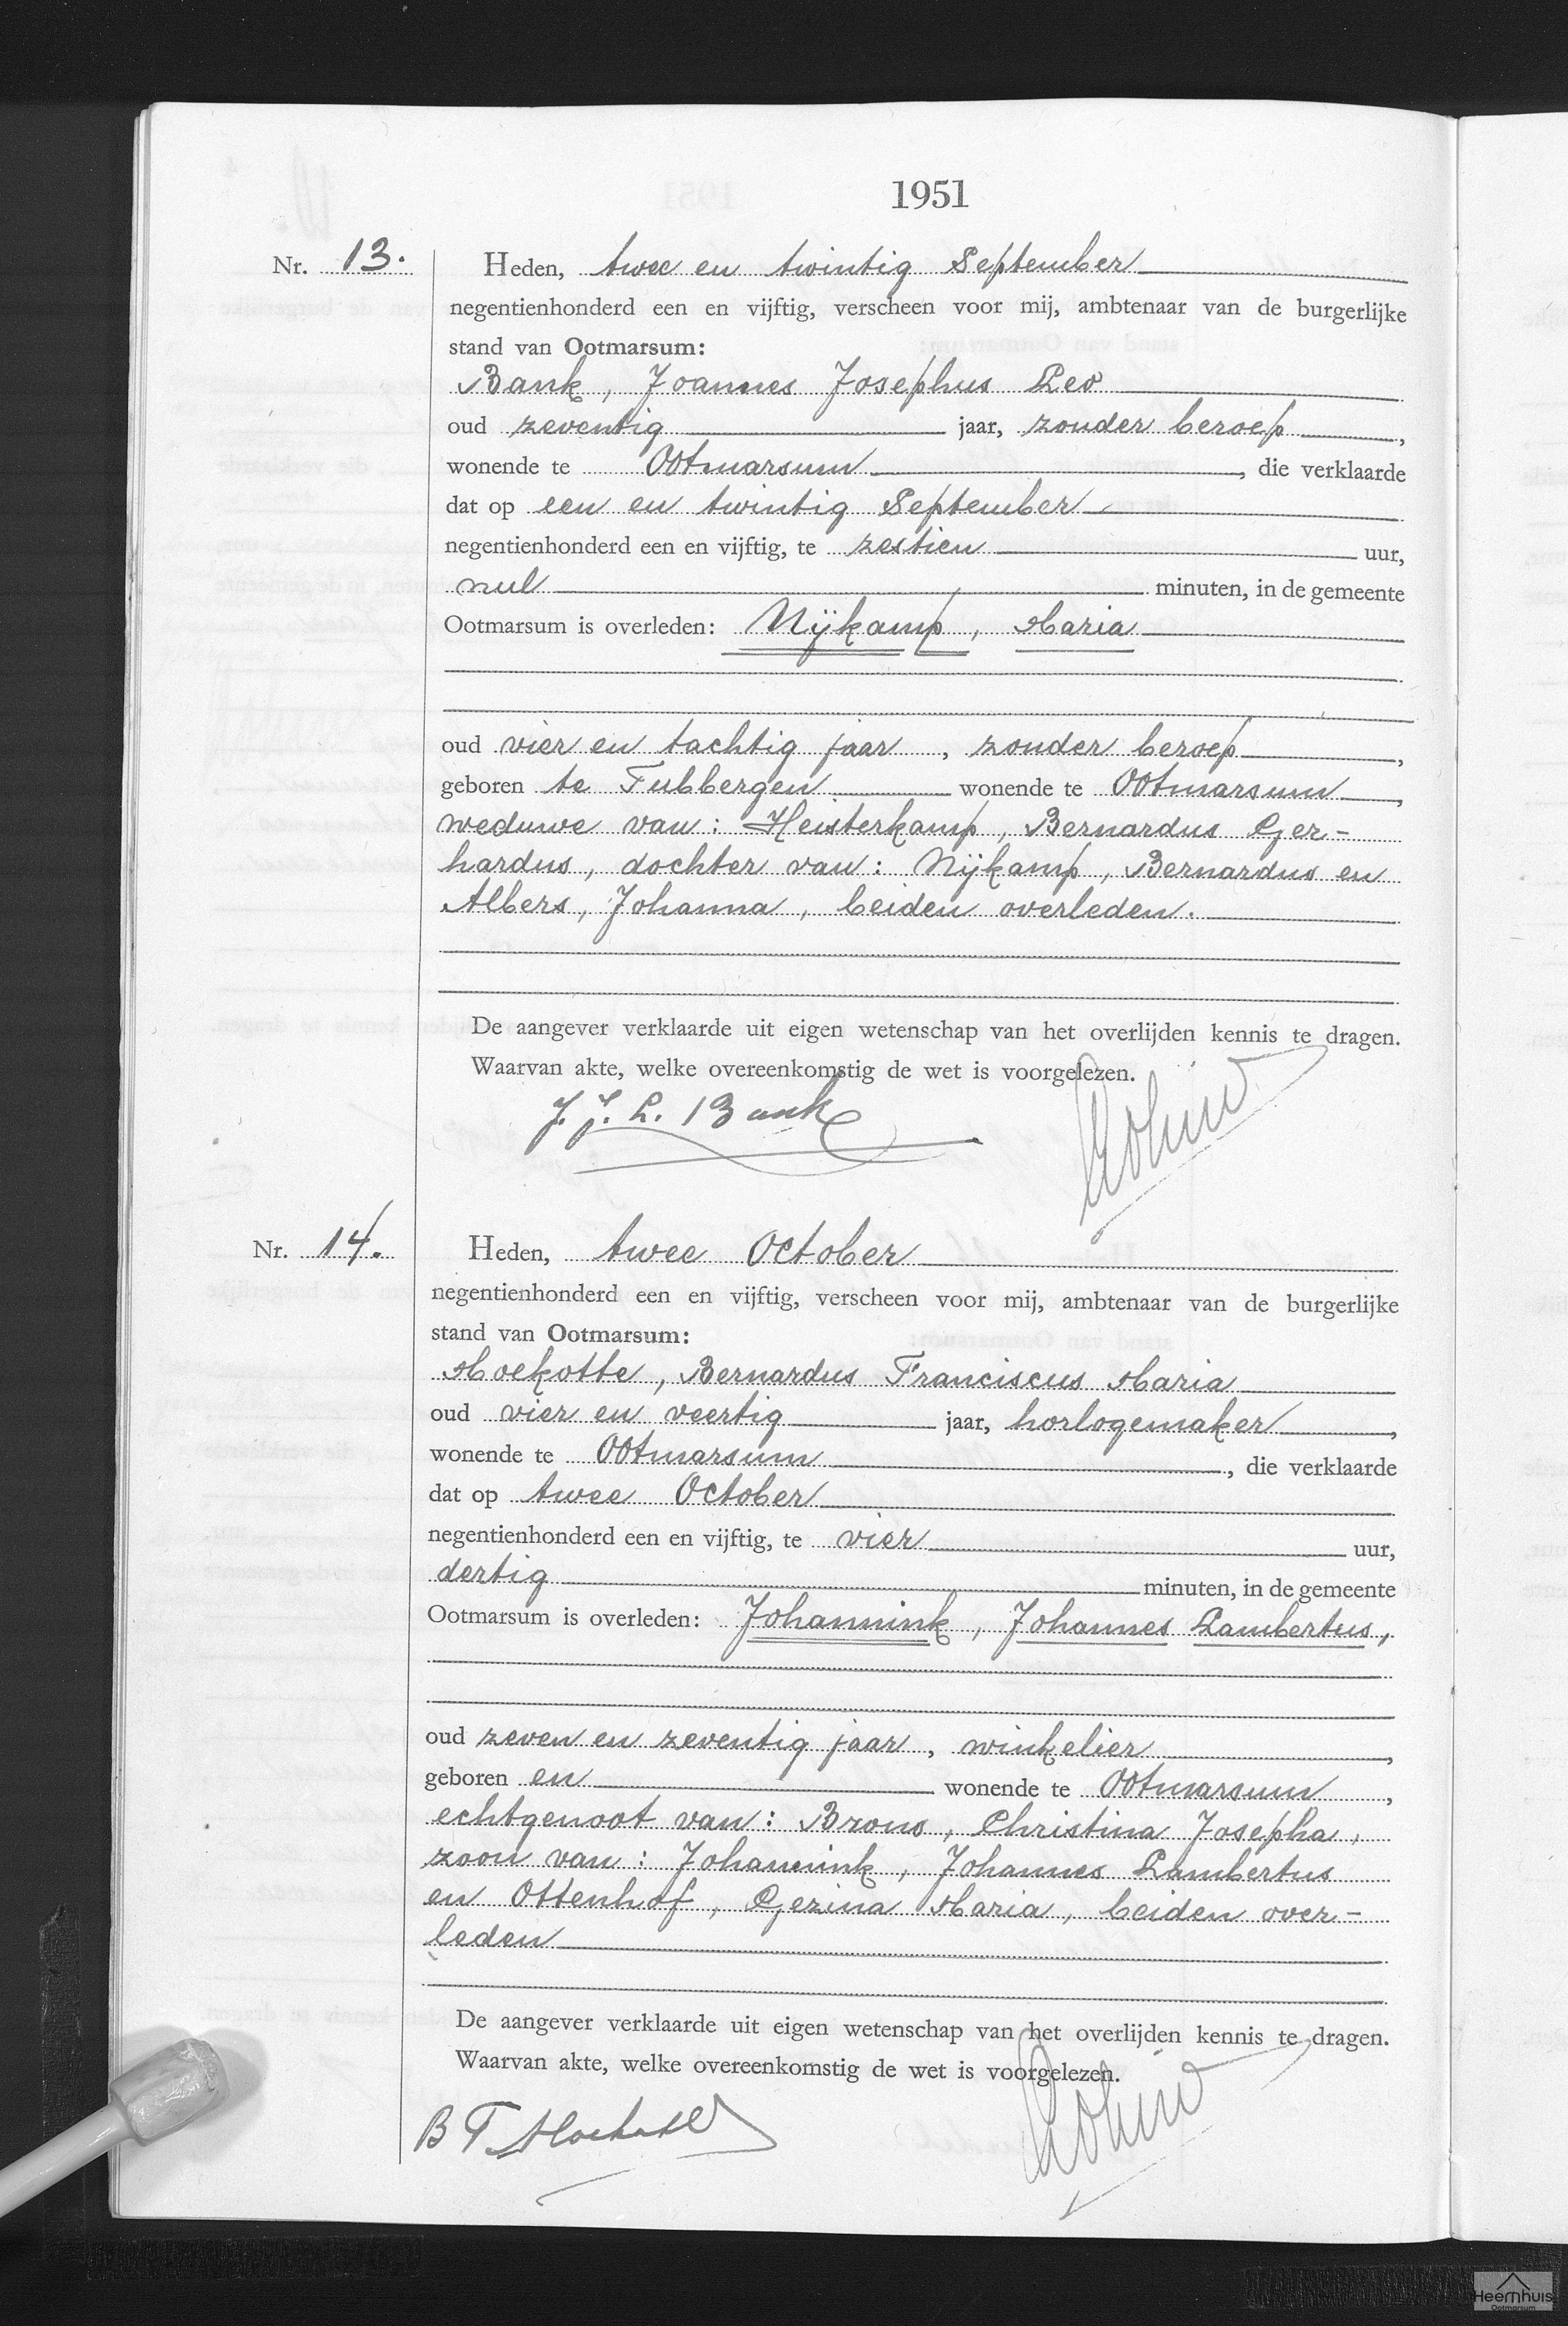 1951
Nr. 13.
Heden, twee en twintig September
negentienhonderd een en vijftig, verscheen voor mij, ambtenaar van de burgerlijke
stand van Ootmarsum:
Bank, Joannes Josephus Leo
oud zeventig jaar, zonder beroep,
wonende te Ootmarsum, die verklaarde
dat op een en twintig September
negentienhonderd een en vijftig, te zestien uur,
nul minuten, in de gemeente
Ootmarsum is overleden: Nijkamp, Maria
oud vier en tachtig jaar, zonder beroep,
geboren te Tubbergen wonende te Ootmarsum,
weduwe van: Heisterkamp, Bernardus Ger-
hardus, dochter van: Nijkamp, Bernardus en
Albers, Johanna, beiden overleden.
De aangever verklaarde uit eigen wetenschap van het overlijden kennis te dragen.
Waarvan akte, welke overeenkomstig de wet is voorgelezen.
J. J. L. Bank
Nr. 14.
Heden, twee October
negentienhonderd een en vijftig, verscheen voor mij, ambtenaar van de burgerlijke
stand van Ootmarsum:
Moekotte, Bernardus Franciscus Maria
oud vier en veertig jaar, horlogemaker,
wonende te Ootmarsum, die verklaarde
dat op twee October
negentienhonderd een en vijftig, te vier uur,
dertig minuten, in de gemeente
Ootmarsum is overleden: Johannink, Johannes Lambertus,
oud zeven en zeventig jaar, winkelier,
geboren en wonende te Ootmarsum,
echtgenoot van: Brons, Christina Josepha,
zoon van: Johannink, Johannes Lambertus
en Ottenhof, Gezina Maria, beiden over-
leden
De aangever verklaarde uit eigen wetenschap van het overlijden kennis te dragen.
Waarvan akte, welke overeenkomstig de wet is voorgelezen.
B F Moekotte
Heemhuis
Ootmarsum